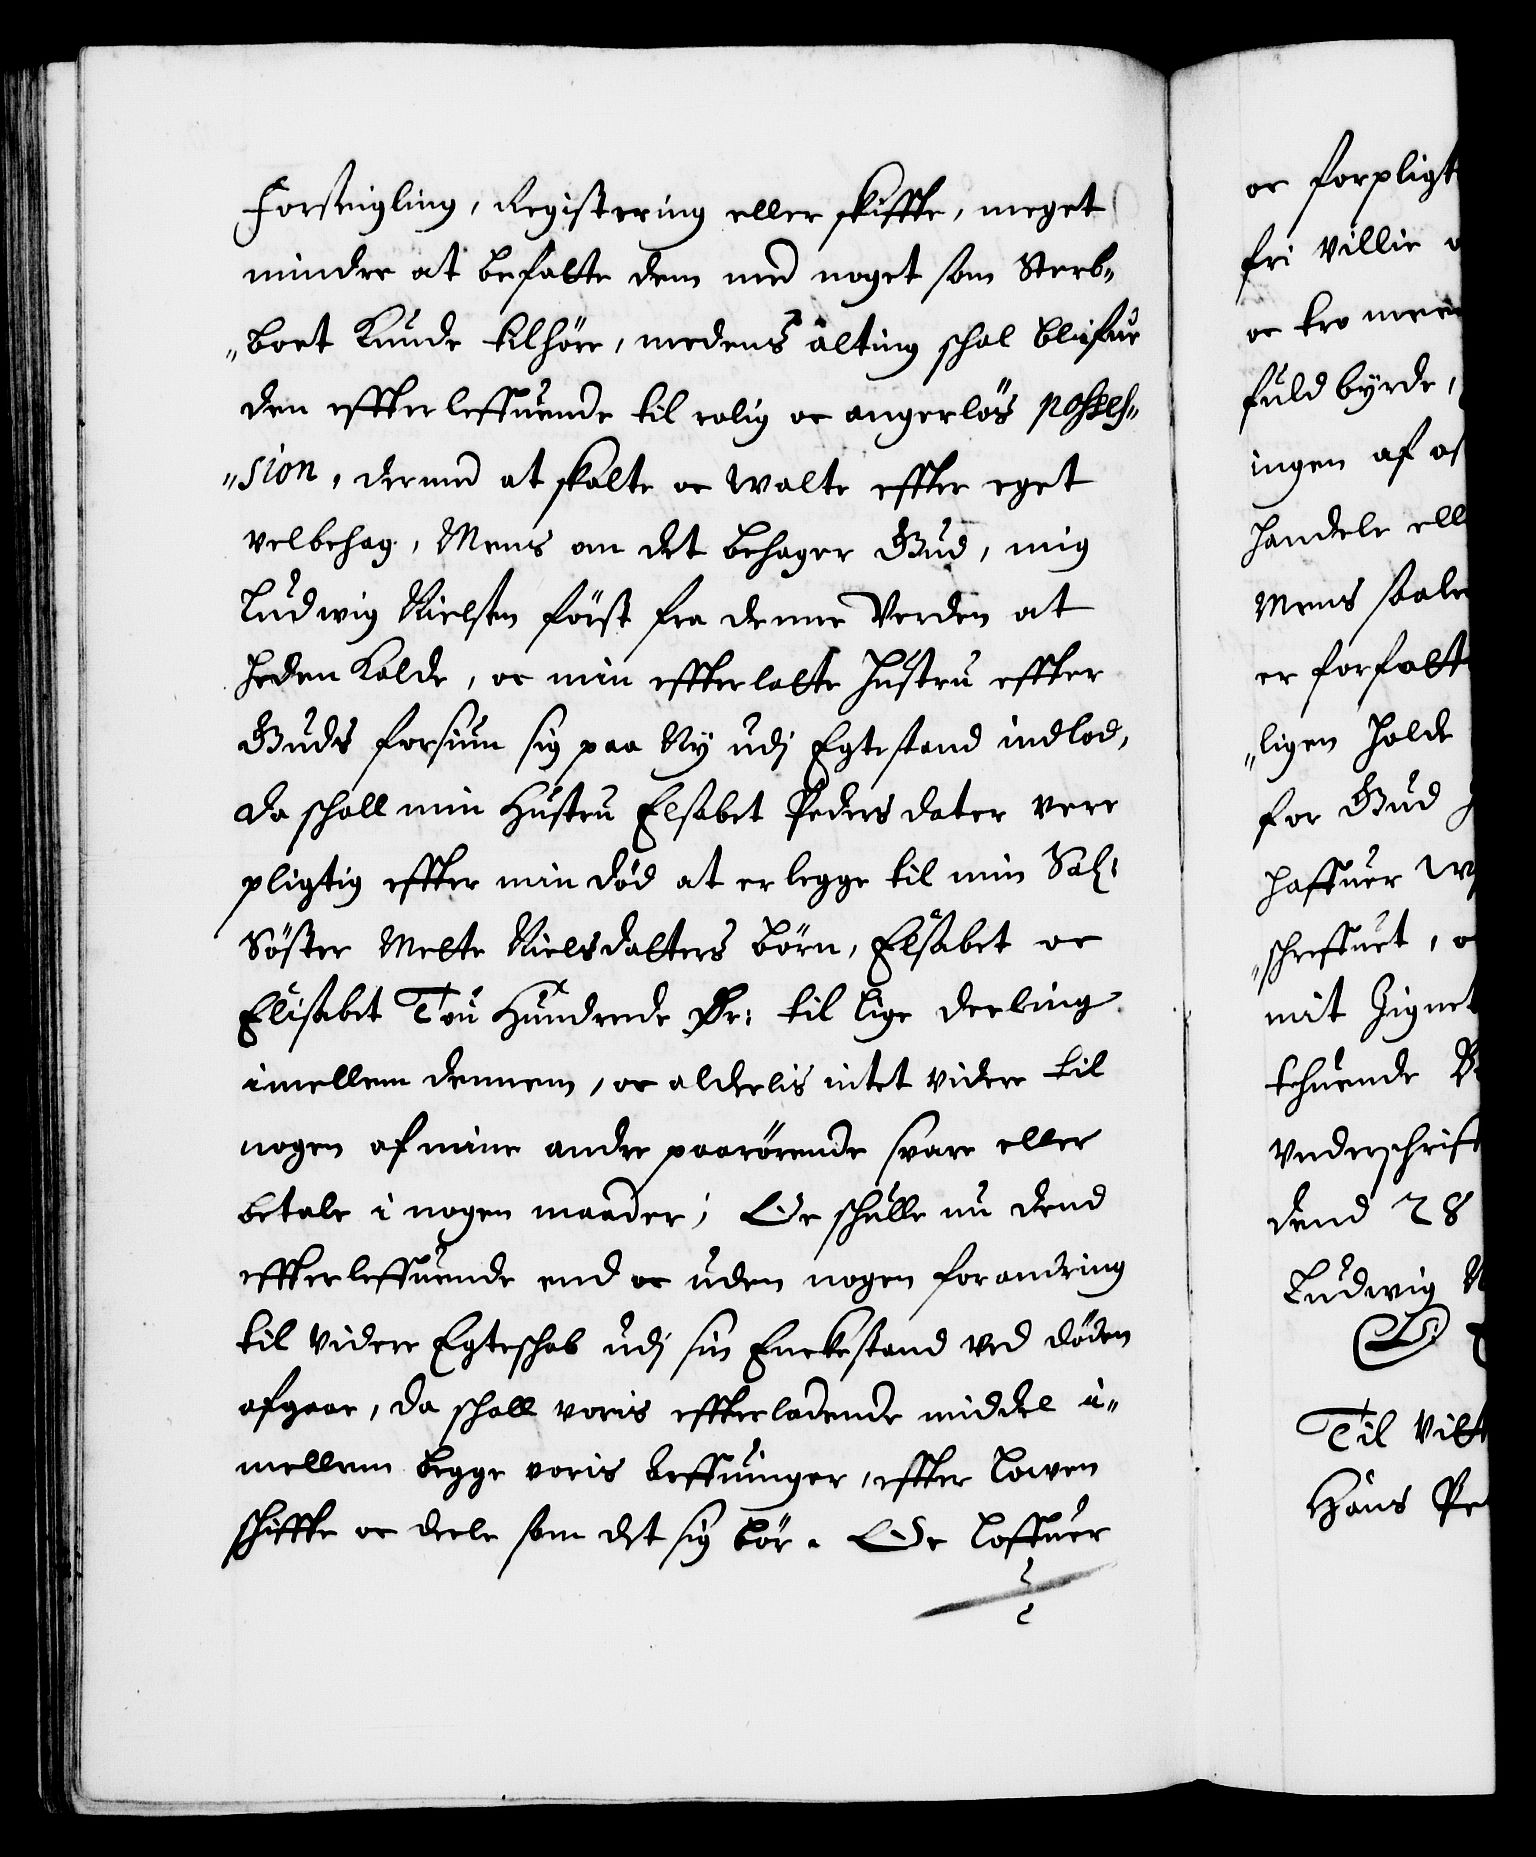 Forseigling, Registering eller skiffte, meget
mindre at befatte dem med noget som Sterb„
„boet Kunde tilhöre, medens alting schal blifue
den effterleffuende til rolig oc angerlös posses„
„sion, dermed at skalte oc walte effter eget
velbehag, Mens om det behager Gud, mig
Ludwig Nielsen först fra denne Verden at
heden Kalde, oc min effterlatte Hustru effter
Guds forsiun sig paa Ny udj Egtestand indlod,
da schall min Hustru Elsabet Peders dater vere
pligtig effter min död at erlegge til min Sal:
Söster Mette Nielsdatters börn, Elsabet oc
Elisabet Tou Hundrede Dr: til lige deeling
imellem dennem, oc alderlis intet videre til
nogen af mine andre paarörende svare eller
betale i nogen maader; Oc schulle nu dend
effterleffuende end oc uden nogen forandring
til videre Egteschab udj sin Enckestand ved döden
afgaae, da schall voris effterladende middel i„
mellem begge voris Arffuinger, effter Lowen
schiffte oc deele som det sig bör. Oc loffuer
oc forpligt
fri villie
oc tro
fuldbyrde,
ingen af
handele ell
Mens saale
er forfatt
„ligen holde
for Gud
haffuer
„schreffuet,
mit Zignet
Underschrift
dend 28
Ludwig N
Til Vitt
Hans Pe